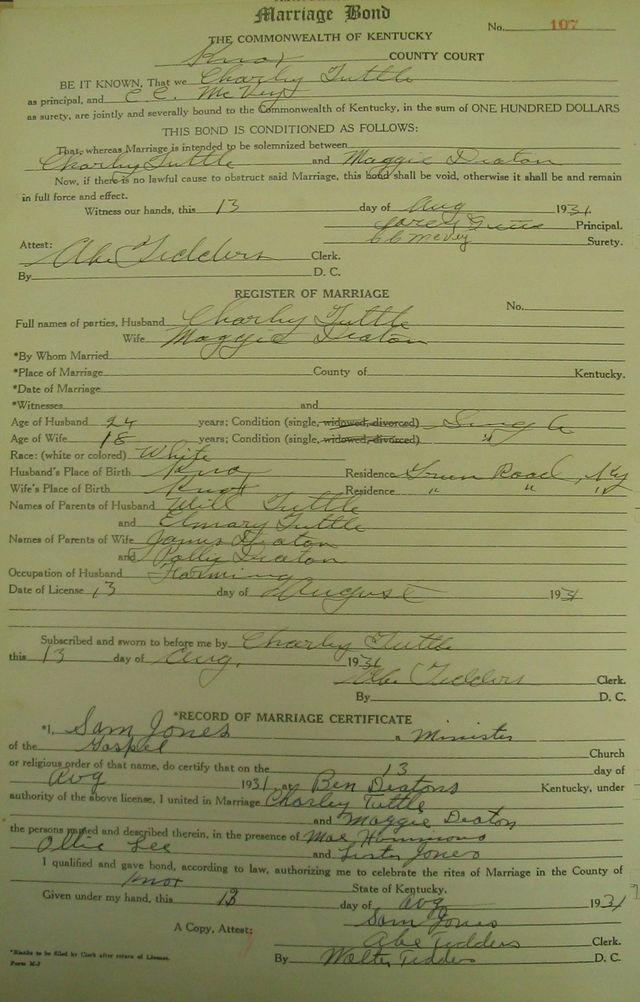 Marriage Bond
No. 107
THE COMMONWEALTH OF KENTUCKY
Knox COUNTY COURT
BE IT KNOWN, That we Charley Tuttle
as principal, and C.C. McVey
as surety, are jointly and severally bound to the Commonwealth of Kentucky, in the sum of ONE HUNDRED DOLLARS
THIS BOND IS CONDITIONED AS FOLLOWS:
That, whereas Marriage is intended to be solemnized between
Charley Tuttle and Maggie Deaton
Now, if there is no lawful cause to obstruct said Marriage, this bond shall be void, otherwise it shall be and remain
in full force and effect.
Witness our hands, this 13 day of Aug 1931
Tuttle Principal.
CC McVey Surety.
Attest:
Abe Tedders Clerk.
By D. C.
REGISTER OF MARRIAGE
No.
Full names of parties, Husband Charley Tuttle
Wife Maggie Deaton
*By Whom Married
*Place of Marriage County of Kentucky.
*Date of Marriage
*Witnesses and
Age of Husband 24 years; Condition (single, widowed, divorced) Single
Age of Wife 18 years; Condition (single, widowed, divorced) "
Race: (white or colored) White
Husband's Place of Birth Knox Residence Green Road, Ky
Wife's Place of Birth Knox Residence " " "
Names of Parents of Husband Will Tuttle
and Elmary Tuttle
Names of Parents of Wife James Deaton
and Polly Deaton
Occupation of Husband Farming
Date of License 13 day of August 1931
Subscribed and sworn to before me by Charley Tuttle
this 13 day of Aug. 1931
Abe Tedders Clerk.
By D. C.
*RECORD OF MARRIAGE CERTIFICATE
*I, Sam Jones a Minister
of the Gospel Church
or religious order of that name, do certify that on the 13 day of
Aug 1931, at Ben Deatons Kentucky, under
authority of the above license, I united in Marriage Charley Tuttle
and Maggie Deaton
the persons named and described therein, in the presence of Mae Hammons
Ollie Lee and Lister Jones
I qualified and gave bond, according to law, authorizing me to celebrate the rites of Marriage in the County of
Knox State of Kentucky.
Given under my hand, this 13 day of Aug 1931
Sam Jones
A Copy, Attest:
Abe Tedders Clerk.
By Walter Tedders D. C.
*Blanks to be filled by Clerk after return of License.
Form M-2